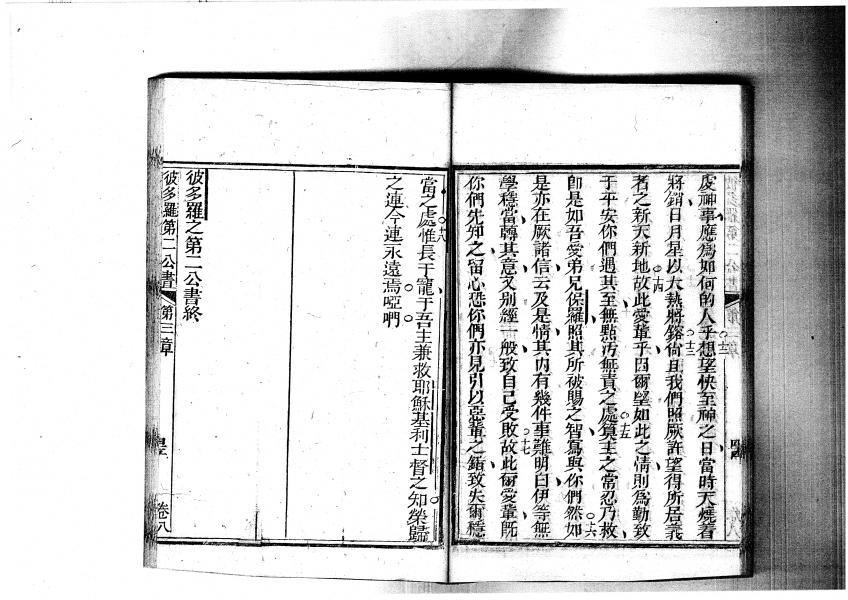 虔神事應爲如何的人乎想望快至神之日當時天燒着
十二
十三
將銷日月星以大熱將鎔尙且我們照厥許望得所居義
者之新天新地故此愛輩乎因爾望如此之情則爲勤致
十四
于平安你們遇其至無點汚無責之處算主之常忍乃救
十五
即是如吾愛弟兄保羅照其所被賜之智寫與你們然如
十六
是亦在厥諸信云及是情其內有幾件事難明白伊等無
學穩當轉其意又別經一般致自己受敗故此爾愛輩旣
十七
你們先知之留心恐你們亦見引以惡輩之錯致失爾穩
當之處惟長于寵于吾主兼救耶穌基利士督之知榮歸
十八
之連今連永遠焉啞們
彼多羅之第二公書終
彼多羅第二公書
第三章
卷八